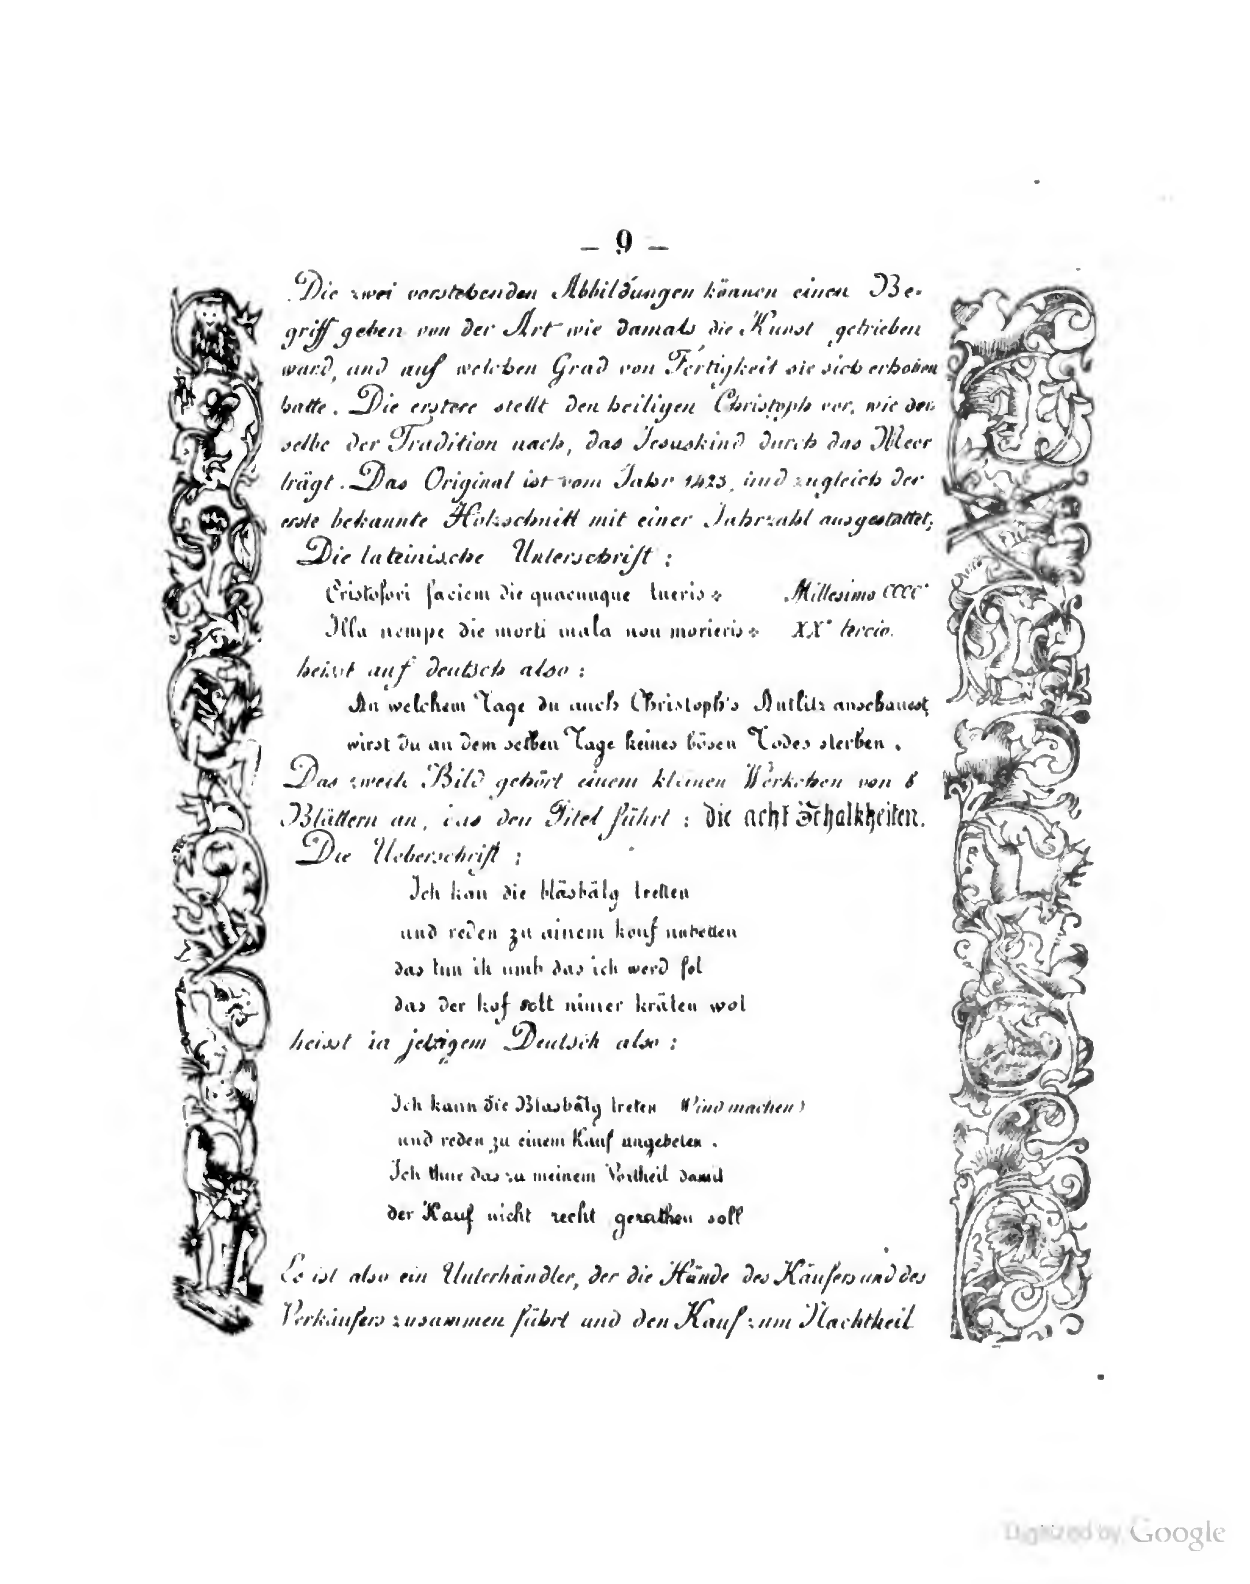 – 9 –
Die zwei vorstehenden Abbildungen können einen Be-
griff geben von der Art wie damals die Kunst getrieben
ward, und auf welchen Grad von Fertigkeit sie sich erhoben
hatte. Die erstere stellt den heiligen Christoph vor, wie der-
selbe der Tradition nach, das Jesuskind durch das Meer
trägt. Das Original ist vom Jahr 1423, und zugleich der
erste bekannte Holzschnitt mit einer Jahrzahl ausgestattet;
Die lateinische Unterschrift:
Cristofori faciem die quacunque tueris Millesimo CCCC°
Illa nempe die morti mala non morieris XX° tercio.
heisst auf deutsch also:
An welchem Tage du auch Christoph's Antlitz anschauest,
wirst du an dem selben Tage keines bösen Todes sterben.
Das zweite Bild gehört einem kleinen Werkchen von 8
Blättern an, das den Titel führt: die acht Schalkheiten.
Die Ueberschrift:
Ich kan die bläsbälg tretten
und reden zu ainem kouf unbetten
das tun ih umb das ich werd fol
das der kof solt nimer kräten wol
heisst in jetzigem Deutsch also:
Ich kann die Blasbälg treten Wind machen)
und reden zu einem Kauf ungebeten.
Ich thue das zu meinem Vortheil damit
der Kauf nicht recht gerathen soll
Es ist also ein Unterhändler, der die Hände des Käufers und des
Verkäufers zusammen führt und den Kauf zum Nachtheil
Digitized by Google